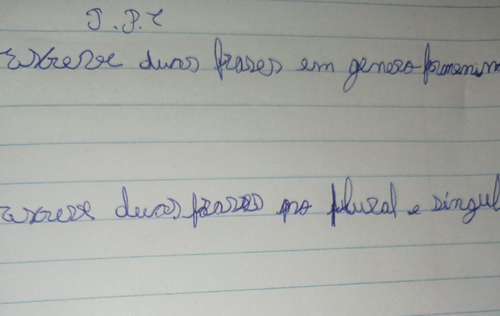 T.P.C
Escreve duas frases em genero femenino
escreve duas frases no plural e singul